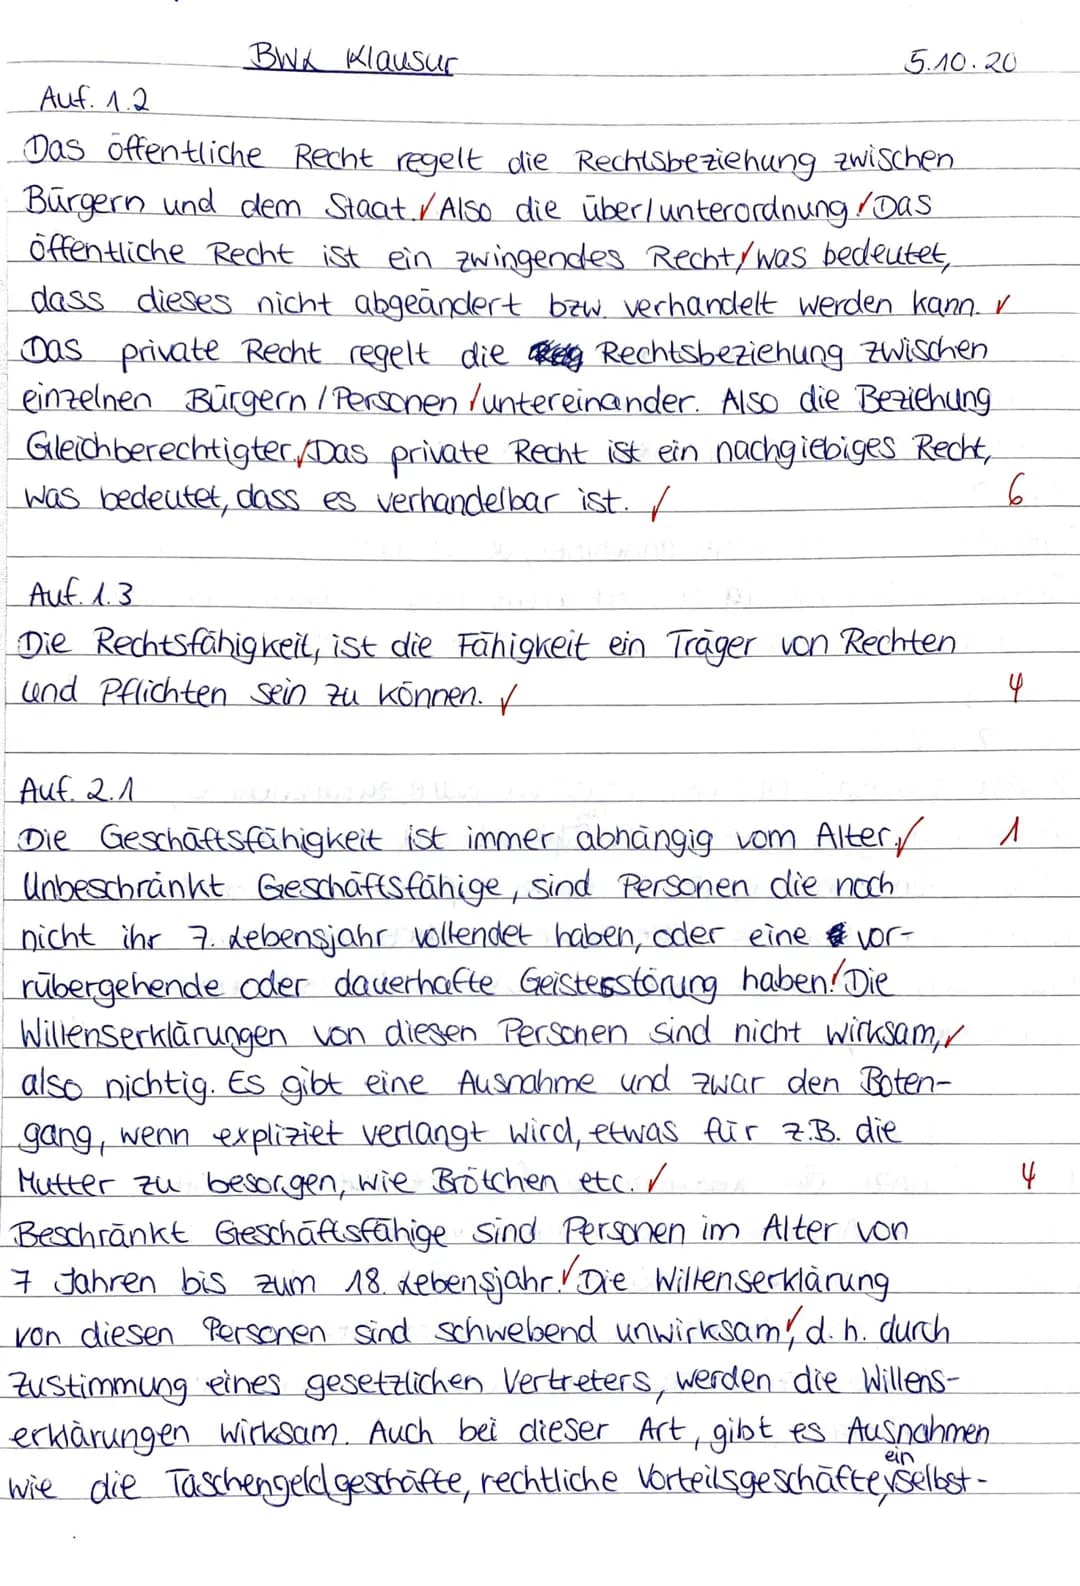 BWL Klausur 5.10.20
Auf. 1.2
Das öffentliche Recht regelt die Rechtsbeziehung zwischen
Bürgern und dem Staat. Also die über/unterordnung. Das
öffentliche Recht ist ein zwingendes Recht, was bedeutet,
dass dieses nicht abgeändert bzw. verhandelt werden kann.
Das private Recht regelt die Rechtsbeziehung zwischen
einzelnen Bürgern / Personen untereinander. Also die Beziehung
Gleichberechtigter. Das private Recht ist ein nachgiebiges Recht,
was bedeutet, dass es verhandelbar ist. 6
Auf. 1.3
Die Rechtsfähigkeit, ist die Fähigkeit ein Träger von Rechten
und Pflichten sein zu können. 4
Auf. 2.1
Die Geschäftsfähigkeit ist immer abhängig vom Alter. 1
Unbeschränkt Geschäftsfähige, sind Personen die noch
nicht ihr 7. Lebensjahr vollendet haben, oder eine vor-
rübergehende oder dauerhafte Geistesstörung haben. Die
Willenserklärungen von diesen Personen sind nicht wirksam,
also nichtig. Es gibt eine Ausnahme und zwar den Boten-
gang, wenn expliziet verlangt wird, etwas für z.B. die
Mutter zu besorgen, wie Brötchen etc. 4
Beschränkt Geschäftsfähige sind Personen im Alter von
7 Jahren bis zum 18. Lebensjahr. Die Willenserklärung
von diesen Personen sind schwebend unwirksam, d. h. durch
Zustimmung eines gesetzlichen Vertreters, werden die Willens-
erklärungen wirksam. Auch bei dieser Art, gibt es Ausnahmen
wie die Taschengeldgeschäfte, rechtliche Vorteilsgeschäfte, ein selbst-